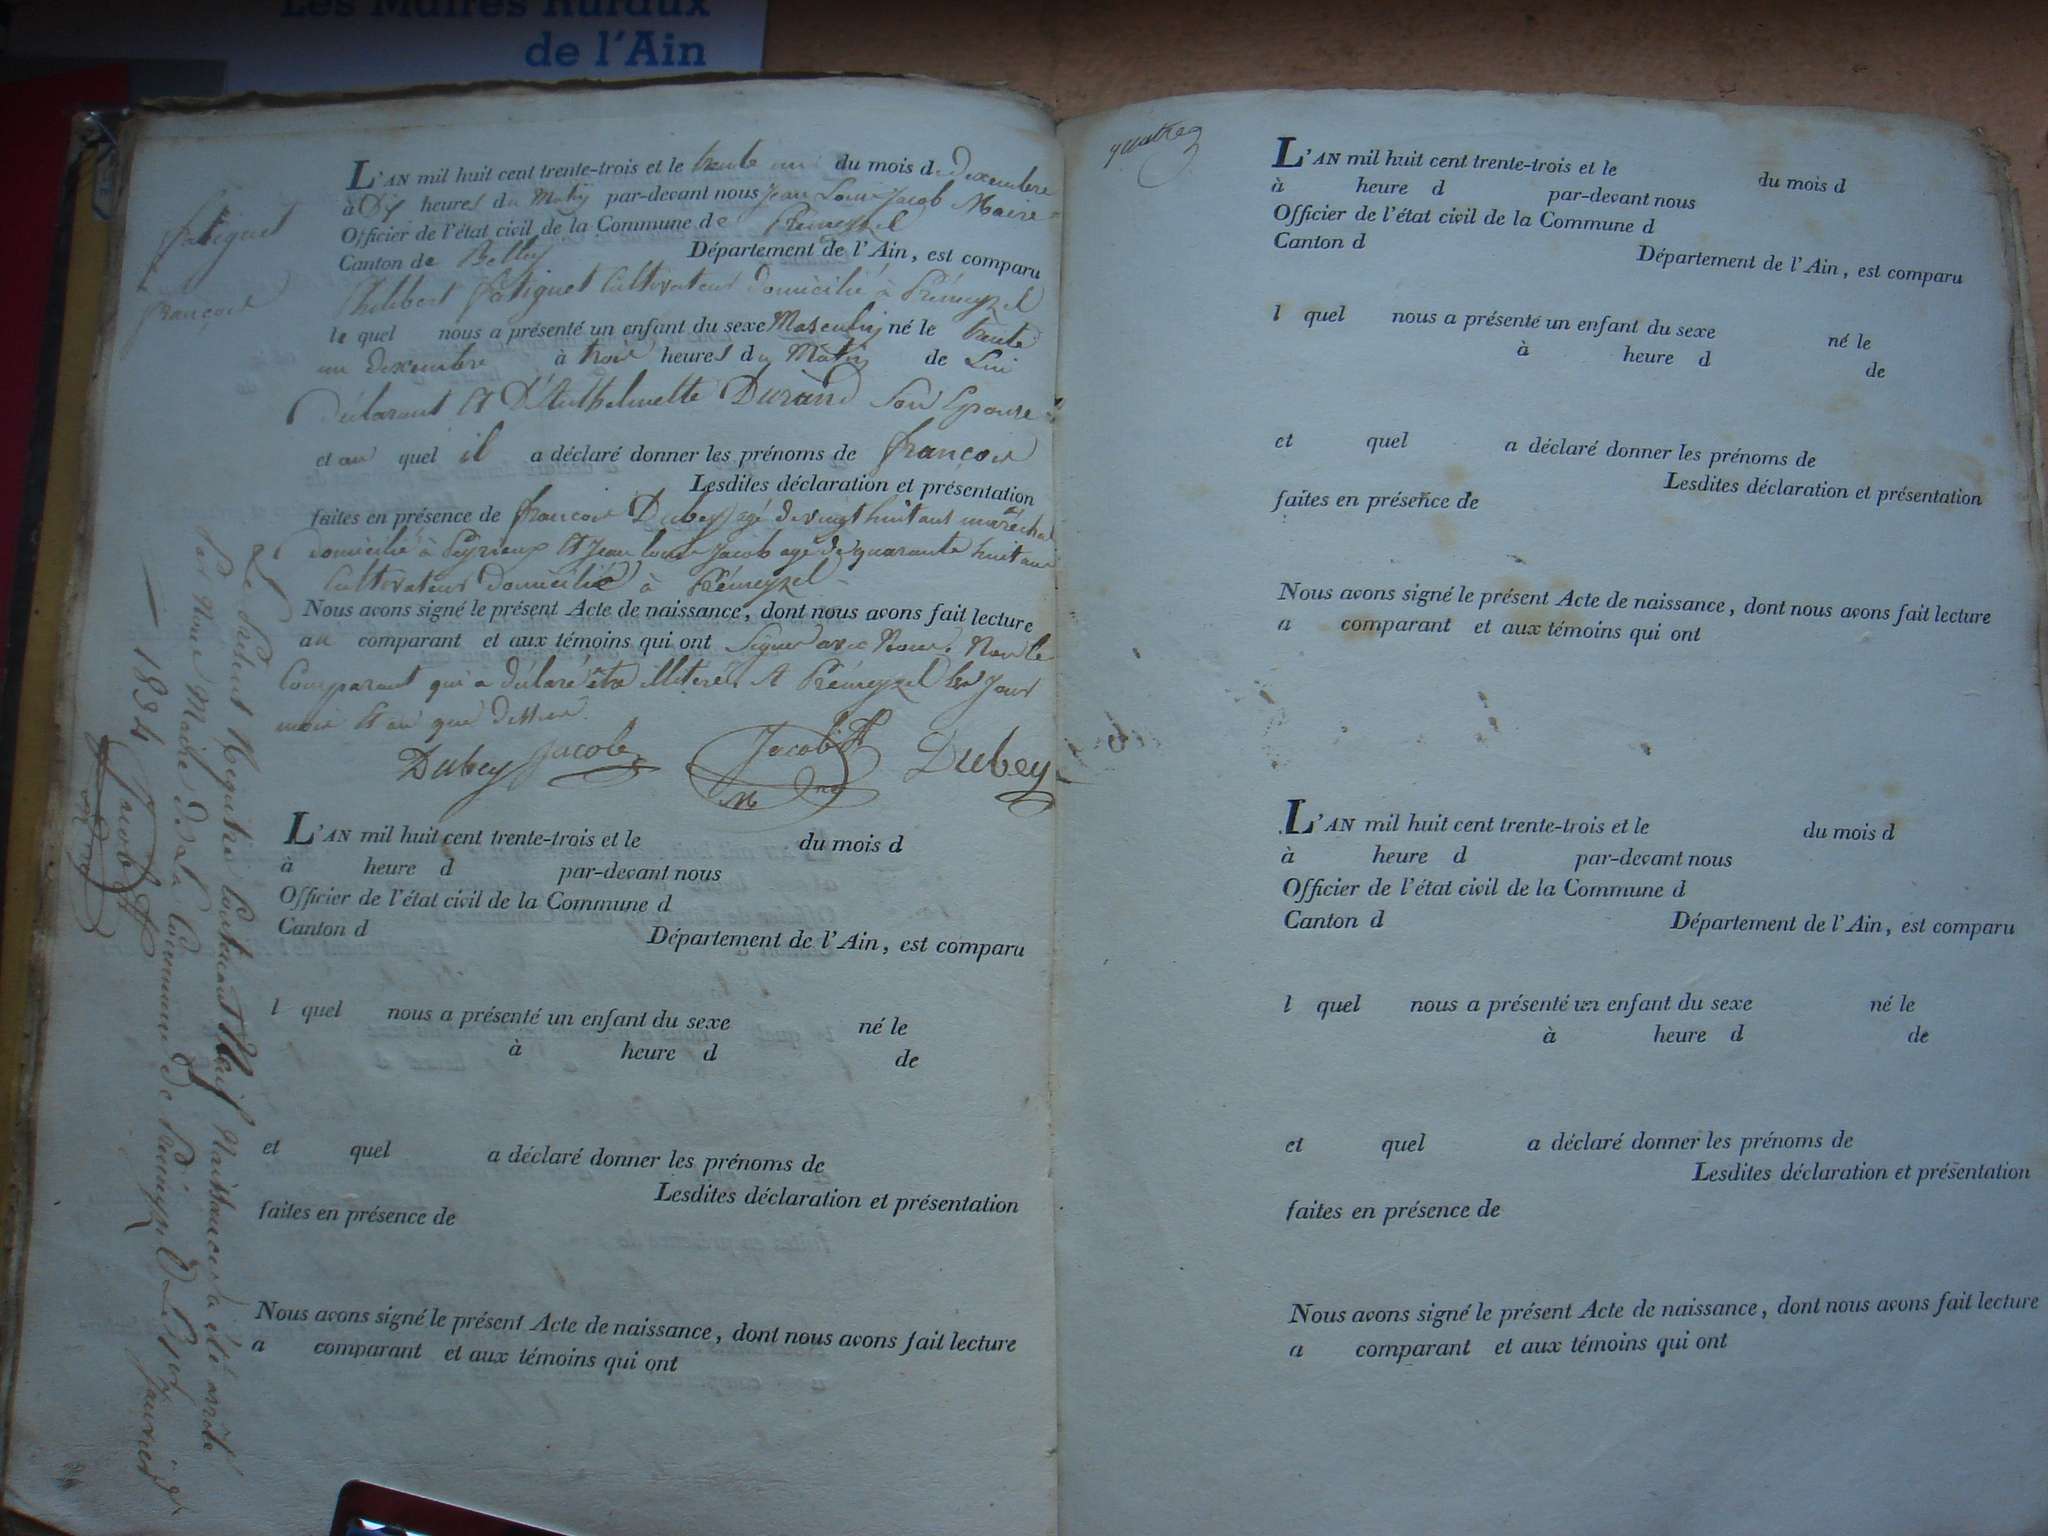 Les Maires Ruraux
de l'Ain
fatiguet
françois
L'AN mil huit cent trente-trois et le trente un du mois de décembre
à Dix heures du Matin par-devant nous Jean Louis Jacob Maire
Officier de l'état civil de la Commune de Prémeyzel
Canton de Belley Département de l'Ain, est comparu
Philibert fatiguet Cultivateur domicilié à Prémeyzel
le quel nous a présenté un enfant du sexe Masculin né le trente
un décembre à trois heures du Matin de Lui
Déclarant Et D'Anthelmette Durand Son Epouse
et au quel il a déclaré donner les prénoms de françois
Lesdites déclaration et présentation
faites en présence de françois Dubey agé de vingt huit ans maréchal
domicilié à Peyrieux Et Jean louis Jacob agé de quarante huit ans
Cultivateur domicilié à Prémeyzel
Nous avons signé le présent Acte de naissance, dont nous avons fait lecture
au comparant et aux témoins qui ont Signé avec Nous. Non le
Comparant qui a déclaré être illitéré. A Prémeyzel les Jour
mois Et an que dessus.
Dubey Jacob Jacob Dubey
Le présent Registre Contenant Neuf Naissances a été arrêté
Par Nous Maire de La Commune de Prémeyzel Le janvier
1834 Jacob
L'AN mil huit cent trente-trois et le du mois d
à heure d par-devant nous
Officier de l'état civil de la Commune d
Canton d Département de l'Ain, est comparu
l quel nous a présenté un enfant du sexe né le
à heure d de
et quel a déclaré donner les prénoms de
Lesdites déclaration et présentation
faites en présence de
Nous avons signé le présent Acte de naissance, dont nous avons fait lecture
a comparant et aux témoins qui ont
quatre
L'AN mil huit cent trente-trois et le du mois d
à heure d par-devant nous
Officier de l'état civil de la Commune d
Canton d Département de l'Ain, est comparu
l quel nous a présenté un enfant du sexe né le
à heure d de
et quel a déclaré donner les prénoms de
Lesdites déclaration et présentation
faites en présence de
Nous avons signé le présent Acte de naissance, dont nous avons fait lecture
a comparant et aux témoins qui ont
L'AN mil huit cent trente-trois et le du mois d
à heure d par-devant nous
Officier de l'état civil de la Commune d
Canton d Département de l'Ain, est comparu
l quel nous a présenté un enfant du sexe né le
à heure d de
et quel a déclaré donner les prénoms de
Lesdites déclaration et présentation
faites en présence de
Nous avons signé le présent Acte de naissance, dont nous avons fait lecture
a comparant et aux témoins qui ont